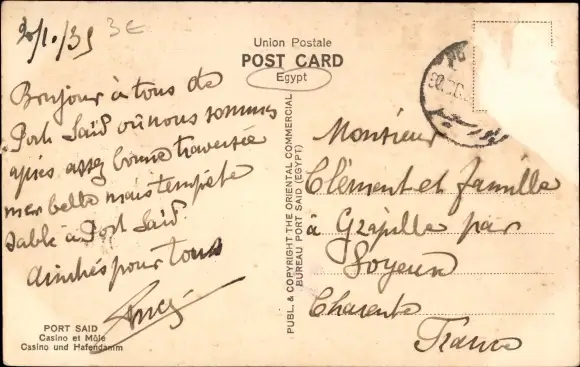 2/1.35 3€
Union Postale
POST CARD
Egypt
Bonjour à tous de
Port Saïd où nous sommes
après assez bonne traversée
mer belle mais tempête
sable à Port Saïd.
pour tous
PUBL. & COPYRIGHT THE ORIENTAL COMMERCIAL
BUREAU PORT SAID (EGYPT)
Monsieur
Clément et famille
à par
Charente
France
PORT SAID
Casino et Môle
Casino und Hafendamm